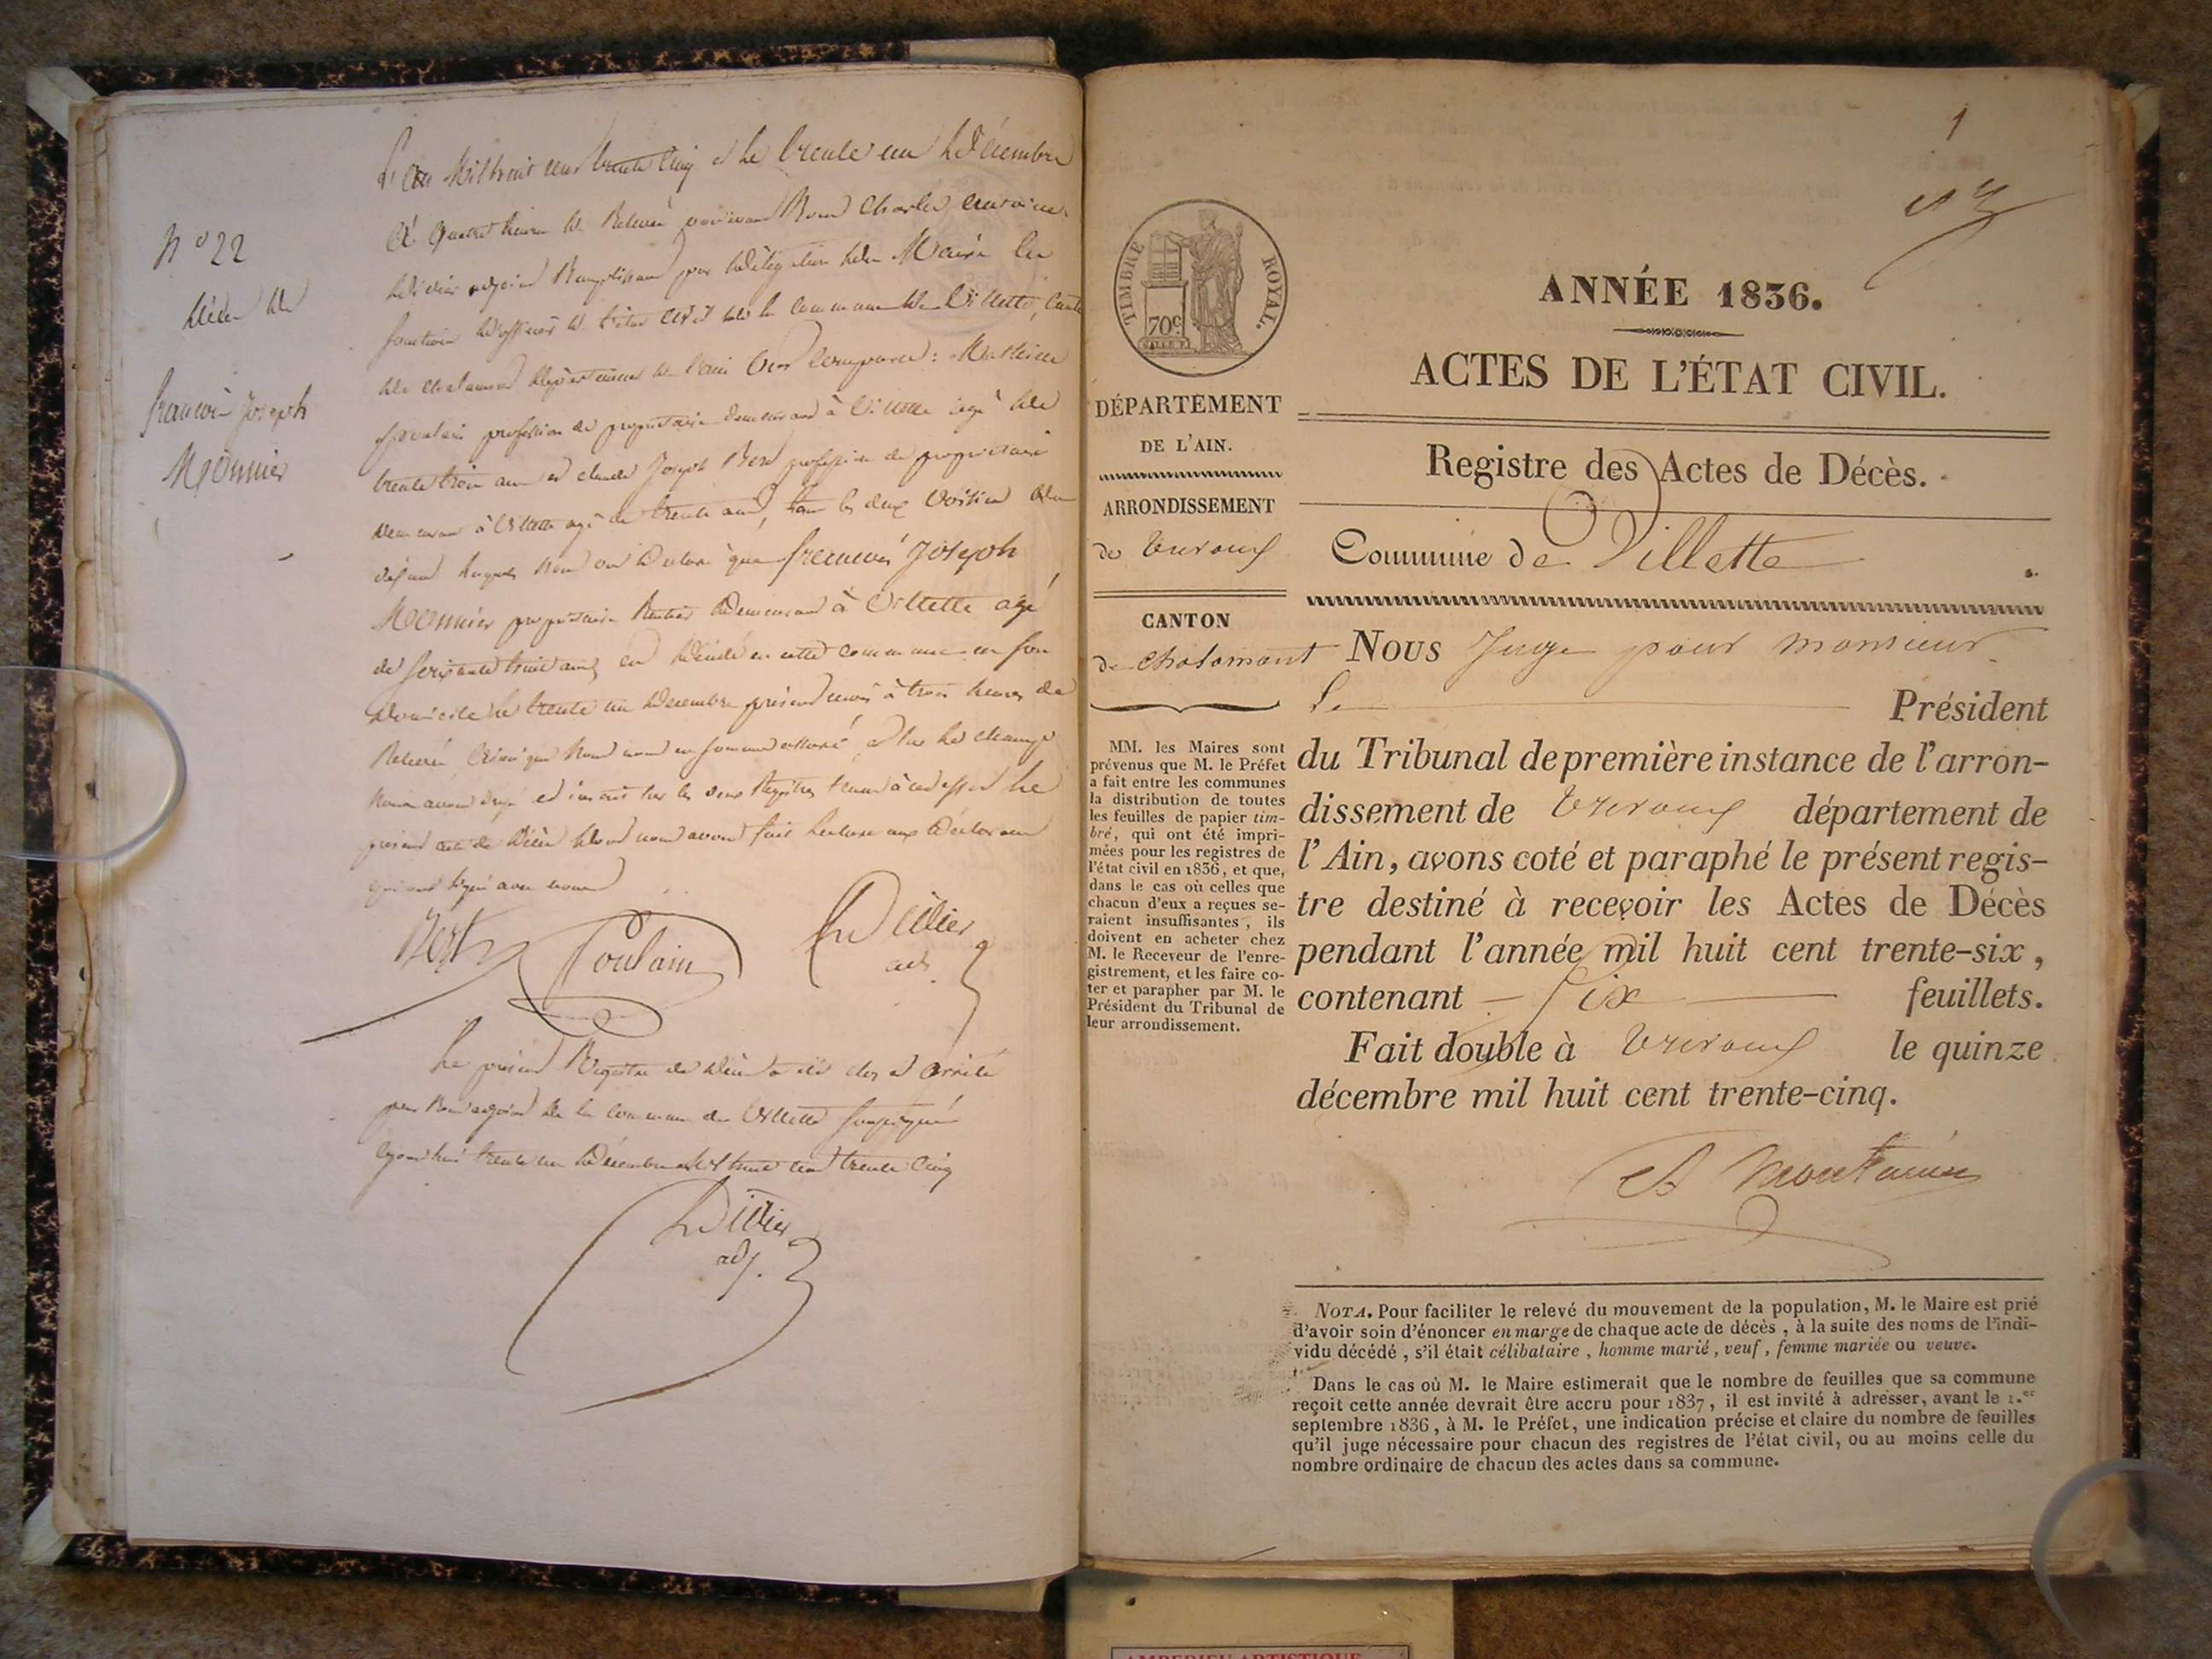 N° 22
décès de
françois Joseph
Monnier
L'an Mil huit cent trente cinq et le trente un décembre
à quatre heures de Relevée par devant Nous Charles Antoine
Didier adjoint Remplissant par délégation du Maire les
fonctions d'officier de l'état civil de la commune de Villette, Canton
de chalamont département de l'ain sont Comparus : Mathieu
Poulain profession de propriétaire demeurant à Villette agé de
trente trois ans et claude Joseph profession de propriétaire
demeurant à Villette agé de trente ans, tous les deux Voisins du
défunt lesquels Nous ont déclaré que françois Joseph
Monnier propriétaire Rentier demeurant à Villette agé
de soixante huit ans, est décédé en cette commune en son
domicile le trente un décembre présent mois à trois heures de
Relevée, Ainsi que Nous nous en sommes assuré, et sur le champ
Nous avons dressé et inscrit sur les deux Registres tenus à cet effet le
présent acte de décès dont nous avons fait lecture aux déclarans
qui ont signé avec nous
Poulain
Didier
adj.
Le présent Registre de décès a été clos et arrêté
par Nous adjoint de la Commune de Villette soussigné
trente un Décembre Mil huit cent trente Cinq
Didier
adj.
1
TIMBRE ROYAL.
70c
DÉPARTEMENT
DE L'AIN.
ARRONDISSEMENT
de Trévoux
CANTON
de chalamont
MM. les Maires sont
prévenus que M. le Préfet
a fait entre les communes
la distribution de toutes
les feuilles de papier tim-
bré, qui ont été impri-
mées pour les registres de
l'état civil en 1836, et que,
dans le cas où celles que
chacun d'eux a reçues se-
raient insuffisantes, ils
doivent en acheter chez
M. le Receveur de l'enre-
gistrement, et les faire co-
ter et parapher par M. le
Président du Tribunal de
leur arrondissement.
ANNÉE 1836.
ACTES DE L'ÉTAT CIVIL.
Registre des Actes de Décès.
Commune de Villette
NOUS Juge pour monsieur
Le Président
du Tribunal de première instance de l'arron-
dissement de Trévoux département de
l'Ain, avons coté et paraphé le présent regis-
tre destiné à recevoir les Actes de Décès
pendant l'année mil huit cent trente-six,
contenant Six feuillets.
Fait double à Trévoux le quinze
décembre mil huit cent trente-cinq.
NOTA. Pour faciliter le relevé du mouvement de la population, M. le Maire est prié
d'avoir soin d'énoncer en marge de chaque acte de décès, à la suite des noms de l'indi-
vidu décédé, s'il était célibataire, homme marié, veuf, femme mariée ou veuve.
Dans le cas où M. le Maire estimerait que le nombre de feuilles que sa commune
reçoit cette année devrait être accru pour 1837, il est invité à adresser, avant le 1.er
septembre 1836, à M. le Préfet, une indication précise et claire du nombre de feuilles
qu'il juge nécessaire pour chacun des registres de l'état civil, ou au moins celle du
nombre ordinaire de chacun des actes dans sa commune.